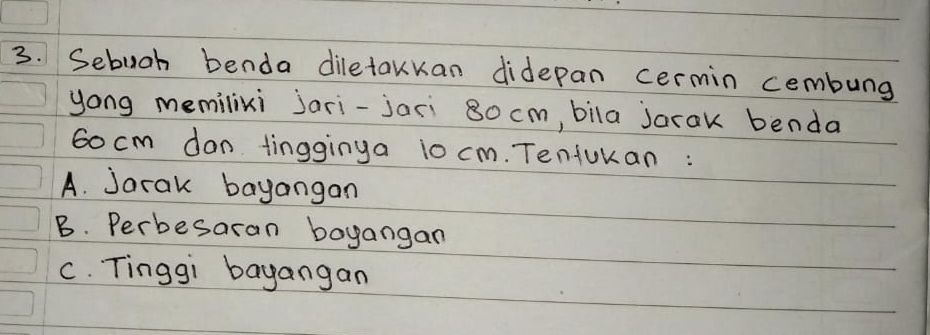 3. Sebuah benda diletakkan didepan cermin cembung
yang memiliki jari-jari 80 cm, bila jarak benda
60 cm dan tingginya 10 cm. Tentukan :
A. Jarak bayangan
B. Perbesaran bayangan
C. Tinggi bayangan